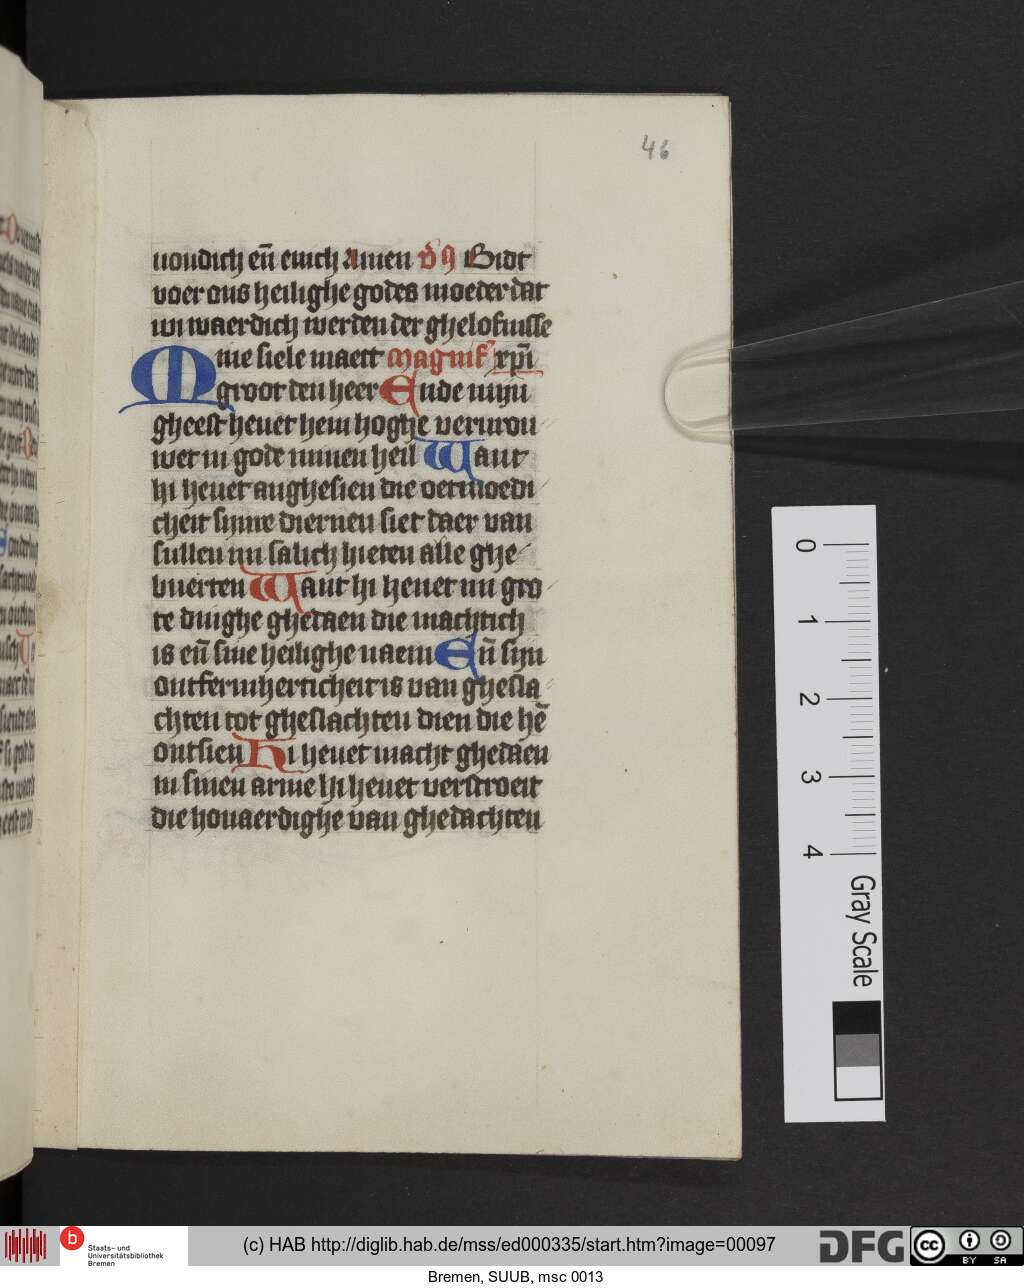 46
uoudich en̄ ewich Amen v̄s Bidt
voer ons heilighe godes moeder dat
wi waerdich werden der ghelofnisse
Mine siele maect magnif xp̄i
groot den heer Ende mijn
gheest heuet hem hoghe verurou
wet in gode minen heil Want
hi heuet anghesien die oetmoedi
cheit sijnre diernen siet daer van
sullen mi salich hieten alle ghe
buerten Want hi heuet mi gro
te dinghe ghedaen die machtich
is en̄ sine heilighe naem En̄ sijn
ontfermherticheit is van ghesla
chten tot gheslachten dien die hē
ontsien Hi heuet macht ghedaen
in sinen arme hi heuet verstroeit
die houaerdighe van ghedachten
0
1
2
3
4
Gray Scale
b
Staats- und
Universitätsbibliothek
Bremen
(c) HAB http://diglib.hab.de/mss/ed000335/start.htm?image=00097
DFG
cc
BY
SA
Bremen, SUUB, msc 0013